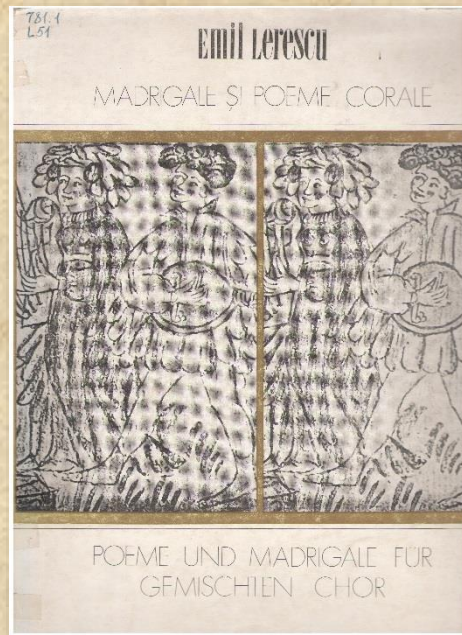 781.1
L51
Emil Lerescu
MADRIGALE ȘI POEME CORALE
POEME UND MADRIGALE FÜR
GEMISCHTEN CHOR